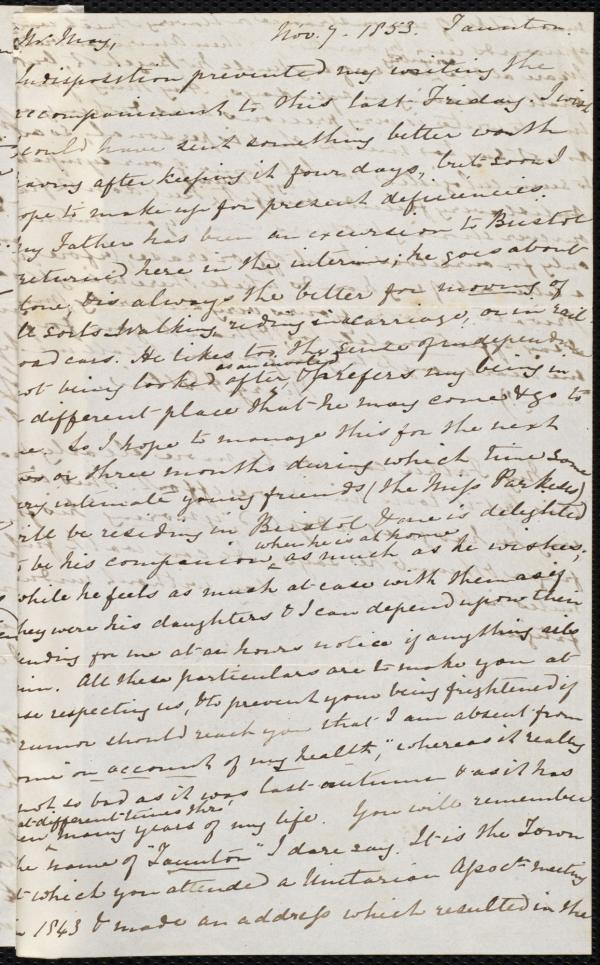 Mr. May, Nov. 7. 1853. Taunton.
Indisposition prevented my writing the
accompaniment to this last Friday. I wish
could have sent something better worth
having after keeping it four days, but soon I
hope to make up for present deficiencies.
My Father has been an excursion to Bristol
& returned here in the interim; he goes about
alone, & is always the better for moving of
all sorts walking, riding in a carriage, or in rail
road cars. He likes too, the sense of independ-
not being looked after, as an invalid, & prefers my being in
a different place that he may come & go to
me. So I hope to manage this for the next
two or three months during which time some
very intimate young friends (the Miss Parkers)
will be residing in Bristol & one is delighted
to be his companion, when he is at home as much as he wishes;
while he feels as much at ease with them as if
they were his daughters & I can depend upon their
sending for me at an hours notice if anything ails
him. All these particulars are to make you at
ease respecting us, & to prevent your being frightened if
rumor should reach you that I am absent from
home "on account of my health," whereas it really
not so bad as it was last autumn & as it has
been at different times thro' many years of my life. You will remember
the name of "Taunton" I dare say. It is the Town
at which you attended a Unitarian Assoctn. meeting
in 1843 & made an address which resulted in the